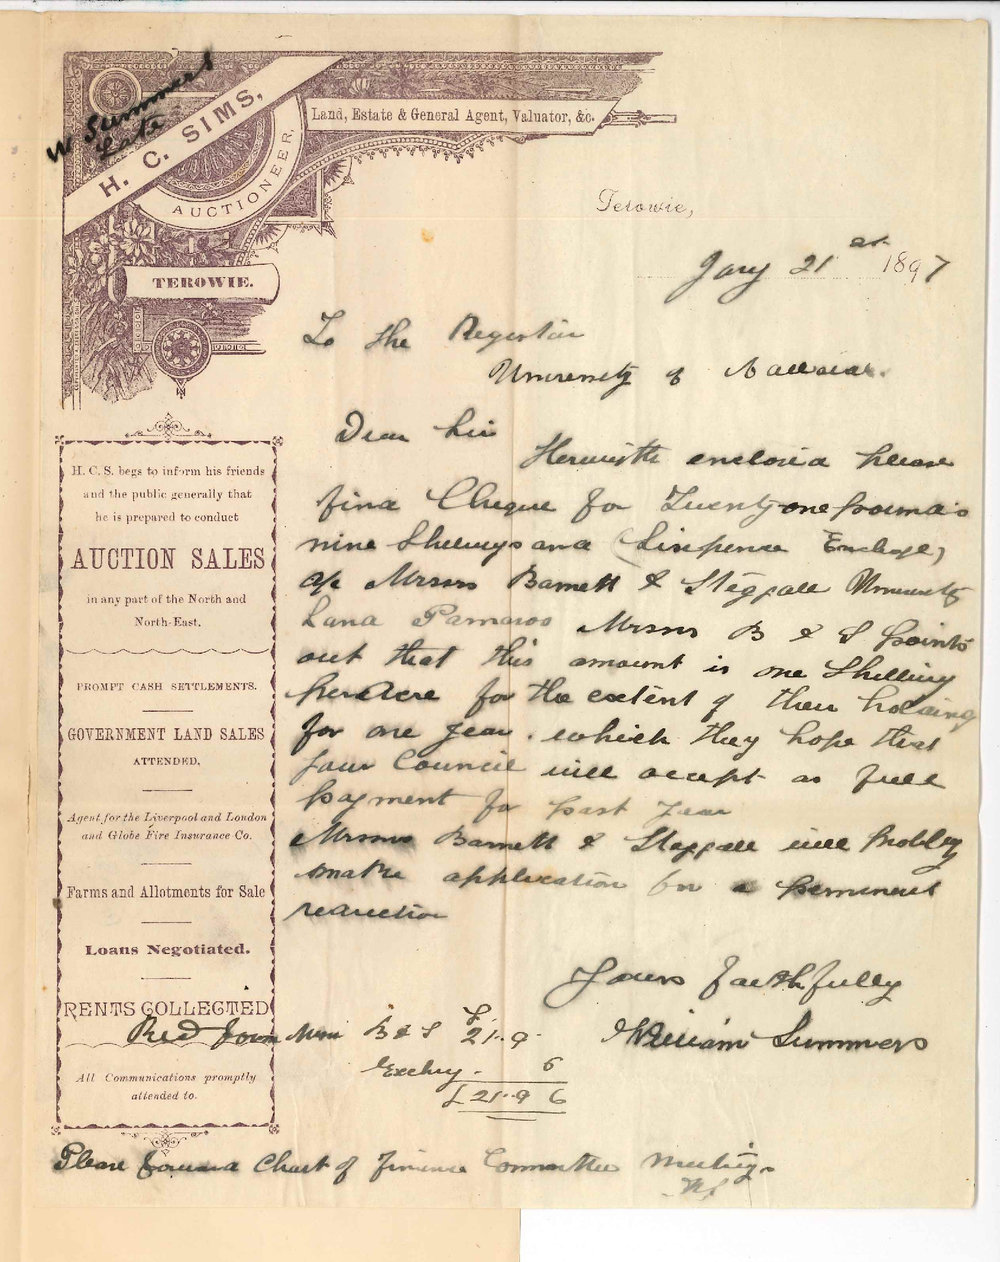 W Summers
Late
H. C. SIMS,
AUCTIONEER.
Land, Estate & General Agent, Valuator, &c.
TEROWIE.
Terowie,
Jany 21st 1897
To the Registrar
University of Adelaide.
Dear Sir
Herewith enclosed please
find Cheque for Twenty one pounds
nine Shillings and (Sixpence Exchge)
a/c Messrs Barnett & Steggall University
Land Pamaroo Messrs B & S points
out that this amount is one Shilling
per Acre for the extent of their holding
for one year. which they hope that
your Council will accept as full
payment for past year
Messrs Barnett & Steggall will probly
make application for a perminent
reduction
Yours faithfully
William Summers
H. C. S. begs to inform his friends
and the public generally that
he is prepared to conduct
AUCTION SALES
in any part of the North and
North-East.
PROMPT CASH SETTLEMENTS.
GOVERNMENT LAND SALES
ATTENDED.
Agent for the Liverpool and London
and Globe Fire Insurance Co.
Farms and Allotments for Sale
Loans Negotiated.
RENTS COLLECTED
All Communications promptly
attended to.
Recd from Messrs B & S £21..9
Exchg. 6
£21..9 6
Please forward Chart of Finance Committee Meetings
WS